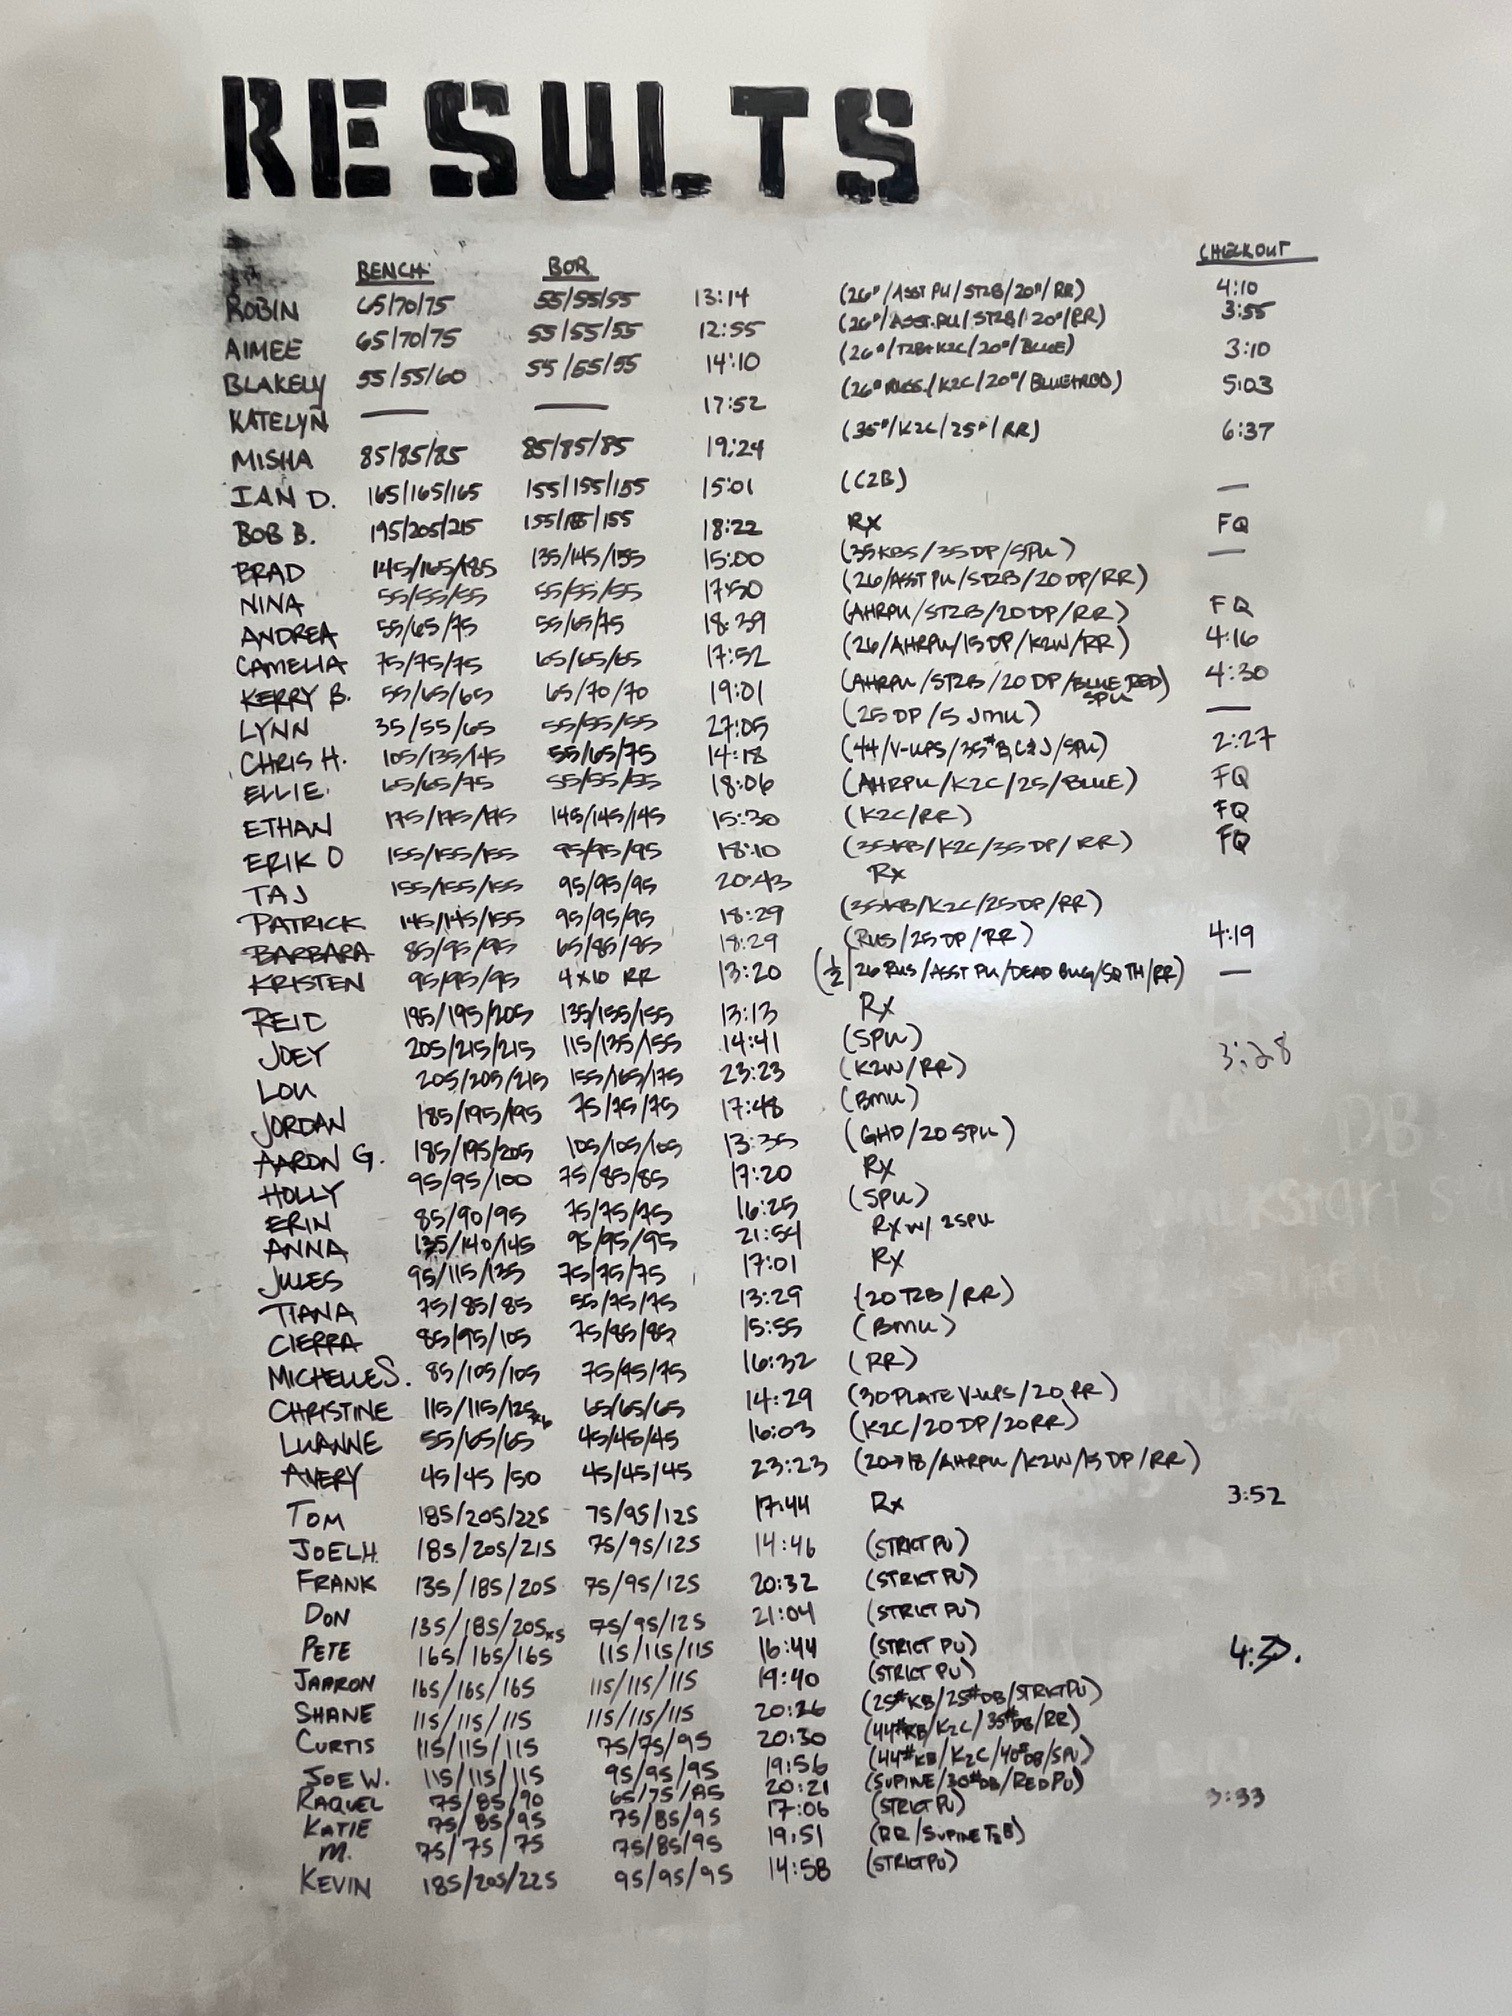 RESULTS
BENCH BOR CHECKOUT
ROBIN 65/70/75 55/55/55 13:14 (26#/ASST PU/ST2B/20#/RR) 4:10
AIMEE 65/70/75 55/55/55 12:55 (26#/ASST.PU/ST2B/20#/RR) 3:55
BLAKELY 55/55/60 55/55/55 14:10 (26#/T2B+K2C/20#/BLUE) 3:10
KATELYN — — 17:52 (26# RUS./K2C/20#/BLUE+RED) 5:03
MISHA 85/85/85 85/85/85 19:24 (35#/K2C/25#/RR) 6:37
IAN D. 165/165/165 155/155/155 15:01 (C2B) —
BOB B. 195/205/215 155/155/155 18:22 Rx FQ
BRAD 145/165/185 135/145/155 15:00 (35KBS/35DP/SPU) —
NINA 55/55/55 55/55/55 17:50 (26/ASST PU/ST2B/20DP/RR)
ANDREA 55/65/75 55/65/75 18:39 (AHRPU/ST2B/20DP/RR) FQ
CAMELIA 75/75/75 65/65/65 17:52 (26/AHRPU/15DP/K2W/RR) 4:16
KERRY B. 55/65/65 65/70/70 19:01 (AHRPU/ST2B/20DP/BLUE RED) SPU 4:30
LYNN 35/55/65 55/55/55 27:05 (25DP/5 JMU) —
CHRIS H. 105/135/145 55/65/75 14:18 (44/V-UPS/35# /SPU) 2:27
ELLIE 65/65/75 55/55/55 18:06 (AHRPU/K2C/25/BLUE) FQ
ETHAN 175/175/175 145/145/145 15:30 (K2C/RR) FQ
ERIK O 155/155/155 95/95/95 18:10 (35KB/K2C/35DP/RR) FQ
TAJ 155/155/155 95/95/95 20:43 Rx
PATRICK 145/145/155 95/95/95 18:29 (35KB/K2C/25DP/RR)
BARBARA 85/95/95 65/85/85 18:29 (RUS/25DP/RR) 4:19
KRISTEN 95/95/95 4x10 RR 13:20 (½|26 RUS/ASST PU/DEAD BUG/SQ TH/RR) —
REID 185/195/205 135/155/155 13:13 Rx
JOEY 205/215/215 115/135/155 14:41 (SPU) 3:28
LOU 205/205/215 155/165/175 23:23 (K2W/RR)
JORDAN 185/195/195 75/75/75 17:48 (BMU)
AARON G. 185/195/205 105/105/105 13:35 (GHD/20SPU)
HOLLY 95/95/100 75/85/85 17:20 Rx
ERIN 85/90/95 75/75/75 16:25 (SPU)
ANNA 135/140/145 95/95/95 21:54 Rx w/ 2SPU
JULES 95/115/135 75/75/75 17:01 Rx
TIANA 75/85/85 55/75/75 13:29 (20T2B/RR)
CIERRA 85/95/105 75/85/85 15:55 (BMU)
MICHELLE S. 85/105/105 75/75/75 16:32 (RR)
CHRISTINE 115/115/125x6 65/65/65 14:29 (30PLATE V-UPS/20 RR)
LUANNE 55/65/65 45/45/45 16:03 (K2C/20DP/20RR)
AVERY 45/45/50 45/45/45 23:23 (20→18/AHRPU/K2W/15DP/RR)
TOM 185/205/225 75/95/125 17:44 Rx 3:52
JOEL H. 185/205/215 75/95/125 14:46 (STRICT PU)
FRANK 135/185/205 75/95/125 20:32 (STRICT PU)
DON 135/185/205x5 75/95/125 21:04 (STRICT PU)
PETE 165/165/165 115/115/115 16:44 (STRICT PU)
JAARON 165/165/165 115/115/115 19:40 (STRICT PU)
SHANE 115/115/115 115/115/115 20:26 (25#KB/25#DB/STRICTPU)
CURTIS 115/115/115 75/75/95 20:30 (44#KB/K2C/35#DB/RR)
JOE W. 115/115/115 95/95/95 19:56 (44#KB/K2C/40#DB/SPU)
RAQUEL 75/85/90 65/75/85 20:21 (SUPINE/30#DB/RED PU) 3:33
KATIE 75/85/95 75/85/95 17:06 (STRICT PU)
M. 75/75/75 75/85/95 19:51 (RR/SUPINE T2B)
KEVIN 185/205/225 95/95/95 14:58 (STRICT PU)